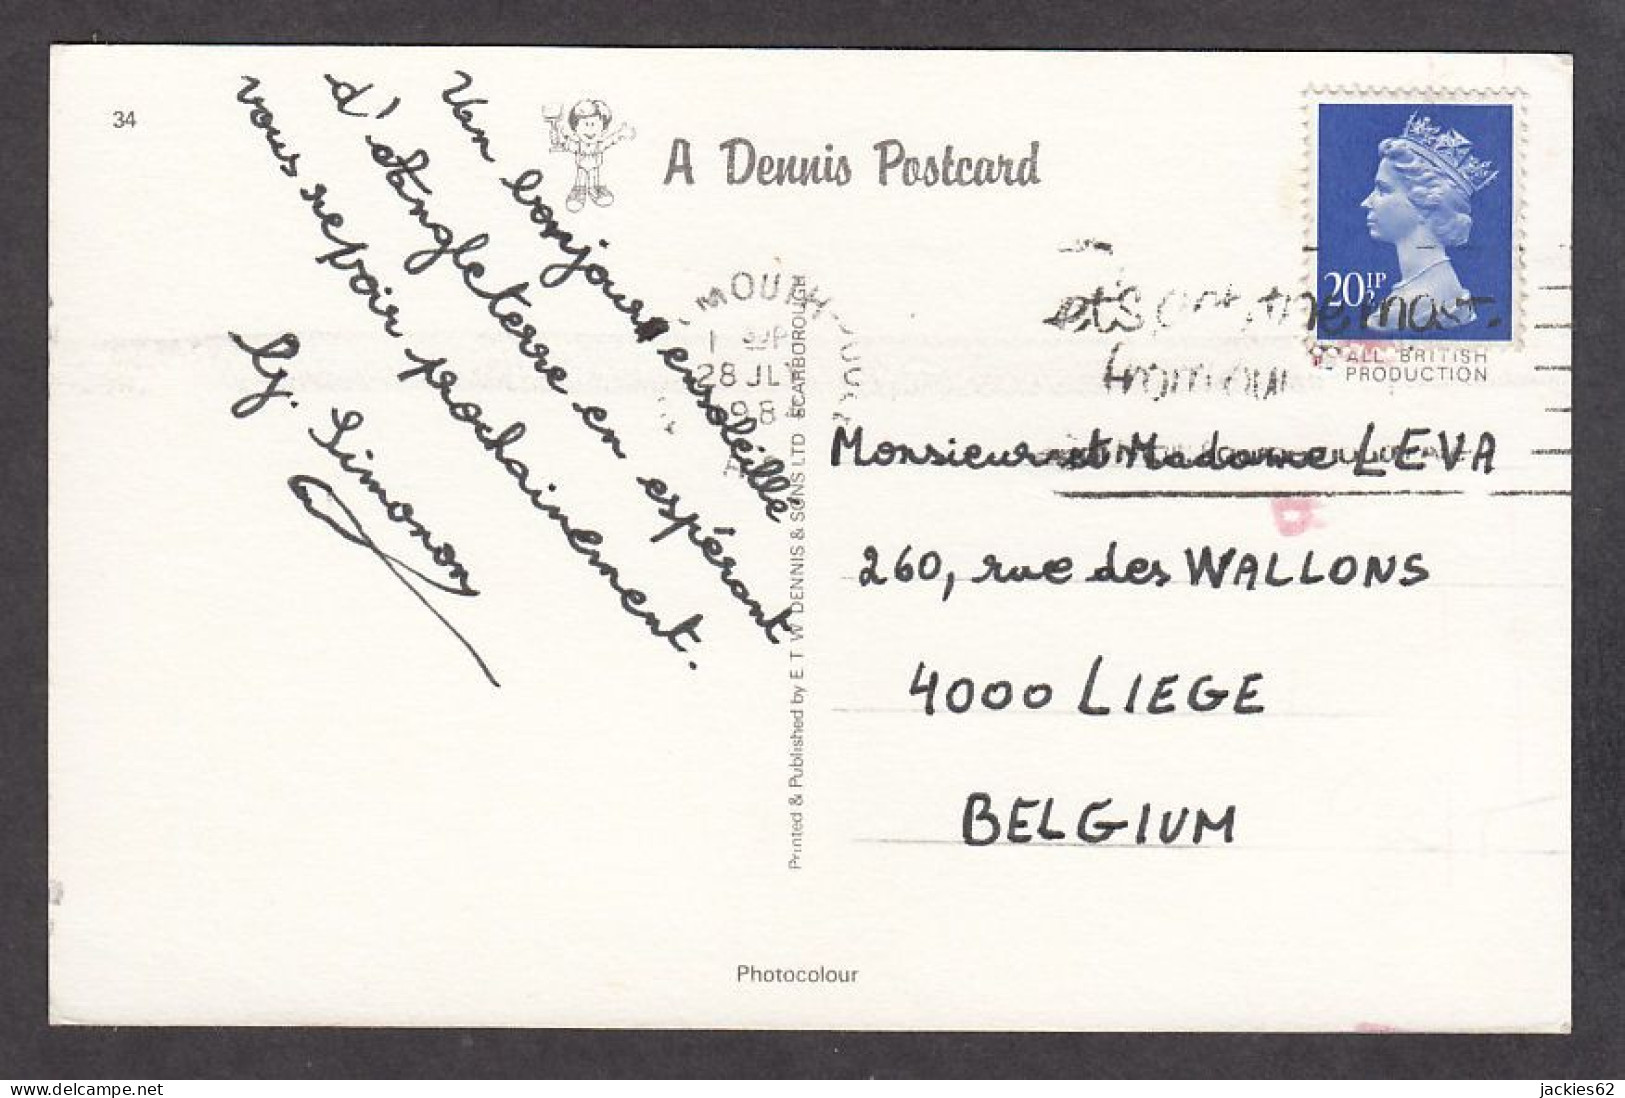 34
A Dennis Postcard
Un bonjour ensoleillé
d'Angleterre en espérant
vous revoir prochainement.
Gy. Simonon
MOUTH
28 JLY
198
20½P
ALL BRITISH
PRODUCTION
Monsieur et Madame LEVA
260, rue des WALLONS
4000 LIEGE
BELGIUM
Printed & Published by E T W DENNIS & SONS LTD SCARBOROUGH
Photocolour
jackies62